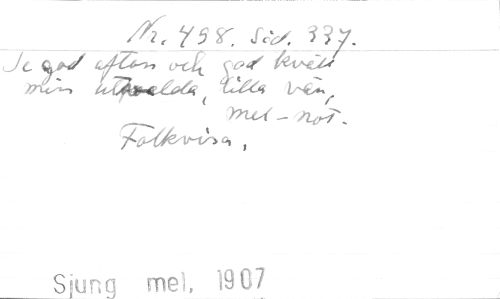 Nr. 498. Sid. 337.
Se god afton och god kväll
min utvalda, lilla vän,
mel-not.
Folkvisa,
Sjung mel, 1907